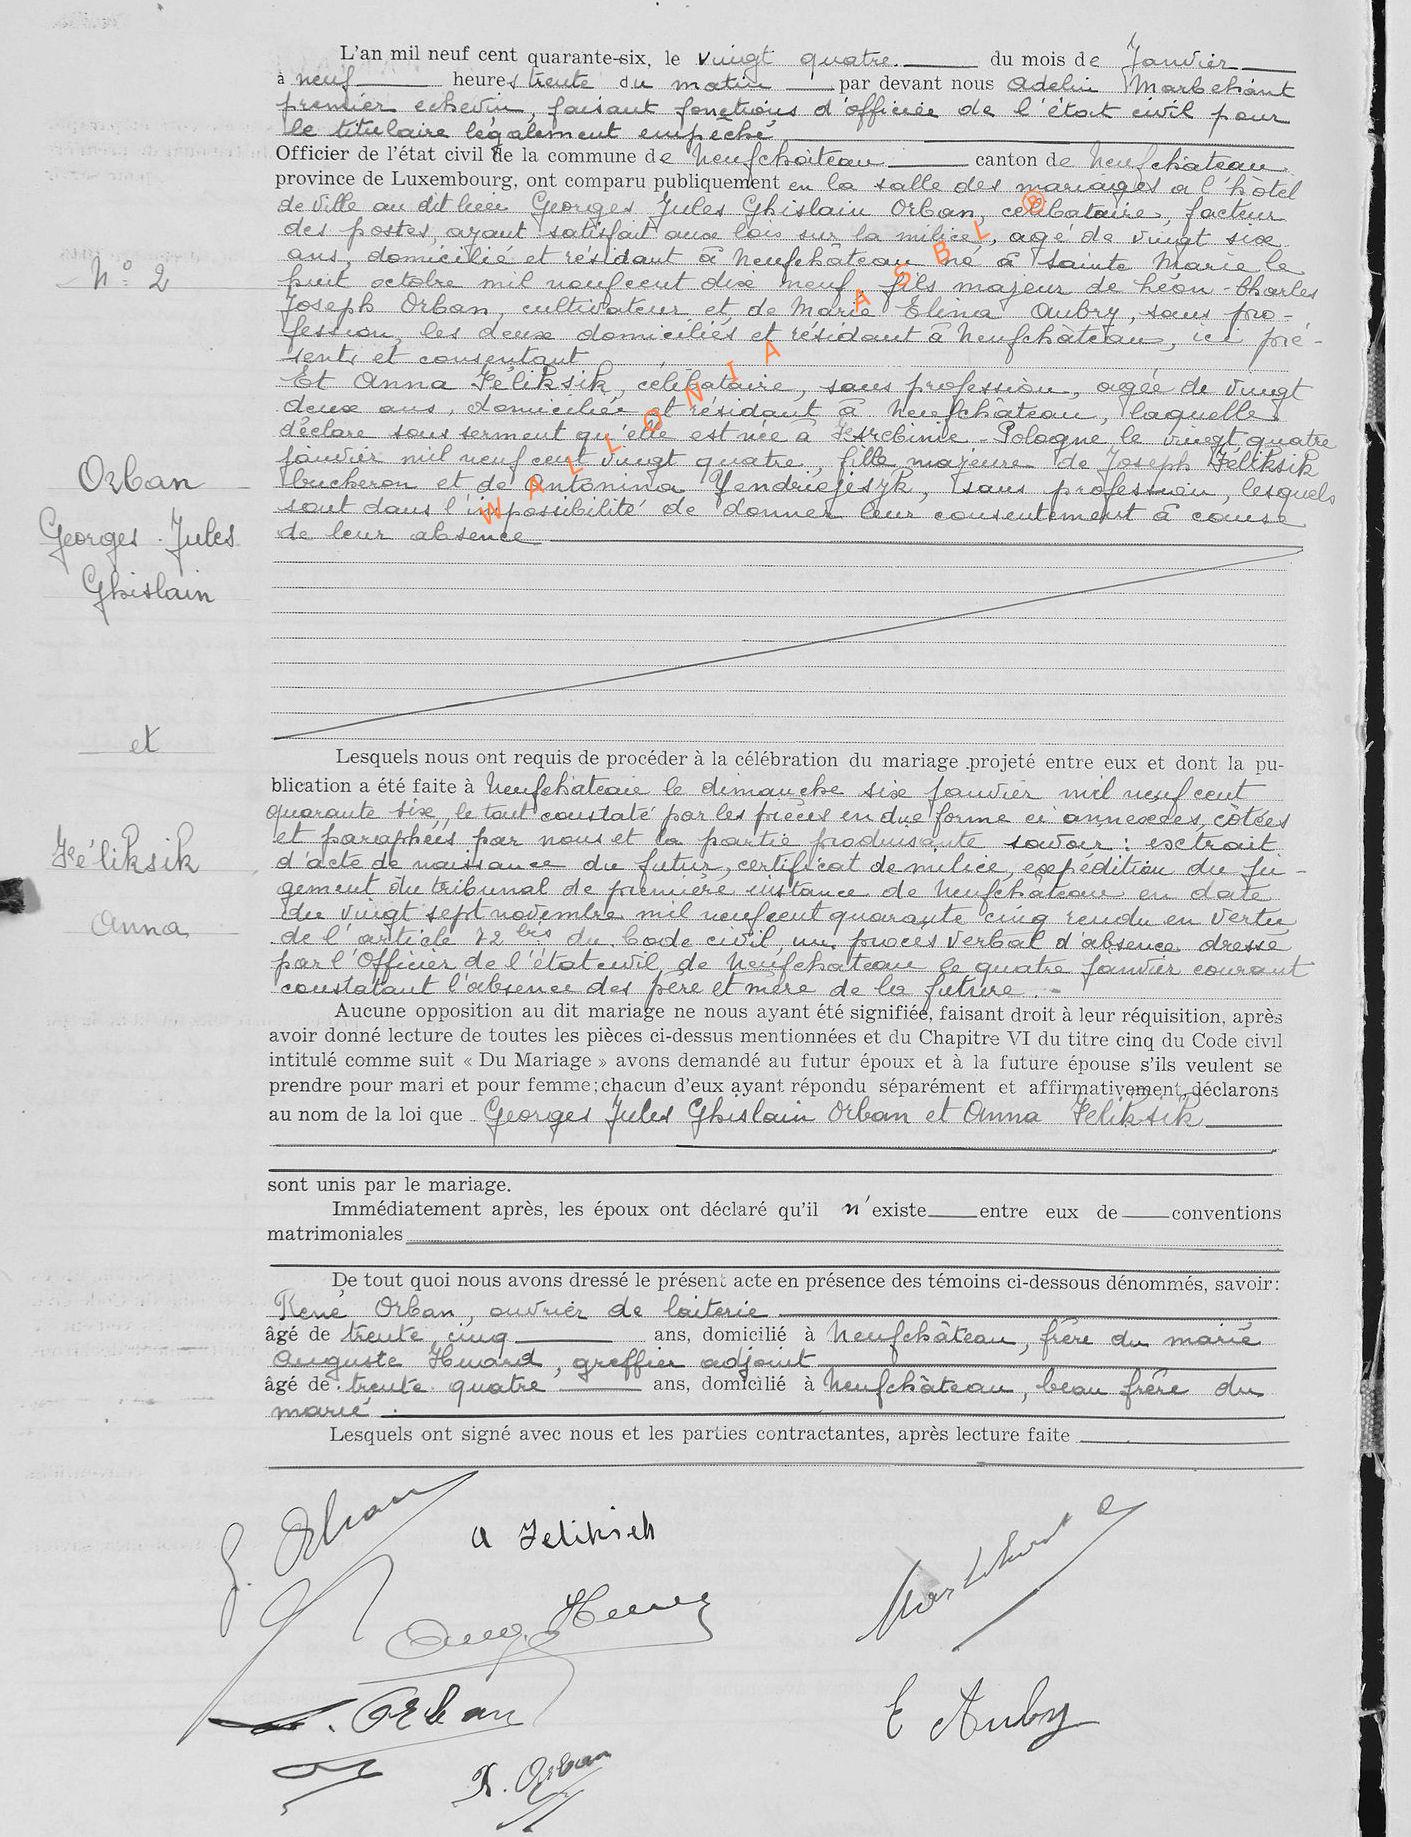 L'an mil neuf cent quarante-six, le vingt quatre du mois de Janvier
à neuf heures trente du matin par devant nous Adelin Marbehant
premier echevin, faisant fonctions d'officier de l'état civil pour
le titulaire légalement empêché
Officier de l'état civil de la commune de Neufchâteau canton de Neufchâteau
province de Luxembourg, ont comparu publiquement en la salle des mariages a l'hôtel
de ville au dit lieu Georges Jules Ghislain Orban, célibataire, facteur
des postes, ayant satisfait aux lois sur la milice, agé de vingt six
ans, domicilié et résidant à Neufchâteau né à Sainte Marie le
huit octobre mil neuf cent dix neuf, fils majeur de Léon-Charles
Joseph Orban, cultivateur et de Marie Elina Aubry, sans pro-
fession, les deux domiciliés et résidant à Neufchâteau, ici pré-
sents et consentant
Et Anna Féliksik, célibataire, sans profession, agée de vingt
deux ans, domiciliée et résidant à Neufchâteau, laquelle
déclare sous serment qu'elle est née à - Pologne le vingt quatre
janvier mil neuf cent vingt quatre, fille majeure de Joseph Féliksik
bucheron et de Antonina sans profession, lesquels
sont dans l'impossibilité de donner leur consentement à cause
de leur absence
WALLONIA ASBL ®
N° 2
Orban
Georges. Jules
Ghislain
et
Féliksik
Anna
Lesquels nous ont requis de procéder à la célébration du mariage projeté entre eux et dont la pu-
blication a été faite à Neufchâteau le dimanche six janvier mil neuf cent
quarante six, le tout constaté par les pièces en due forme ci annexées, côtées
et paraphées par nous et la partie produisante savoir : extrait
d'acte de naissance du futur, certificat de milice, expédition du ju-
gement du tribunal de première instance de Neufchâteau en date
du vingt sept novembre mil neuf cent quarante cinq rendu en vertu
de l'article 72 bis du Code civil, un procès verbal d'absence dressé
par l'Officier de l'état civil de Neufchâteau le quatre janvier courant
constatant l'absence des père et mère de la future.
Aucune opposition au dit mariage ne nous ayant été signifiée, faisant droit à leur réquisition, après
avoir donné lecture de toutes les pièces ci-dessus mentionnées et du Chapitre VI du titre cinq du Code civil
intitulé comme suit « Du Mariage » avons demandé au futur époux et à la future épouse s'ils veulent se
prendre pour mari et pour femme; chacun d'eux ayant répondu séparément et affirmativement, déclarons
au nom de la loi que Georges Jules Ghislain Orban et Anna Féliksik
sont unis par le mariage.
Immédiatement après, les époux ont déclaré qu'il n'existe entre eux de conventions
matrimoniales
De tout quoi nous avons dressé le présent acte en présence des témoins ci-dessous dénommés, savoir:
René Orban, ouvrier de laiterie
âgé de trente cinq ans, domicilié à Neufchâteau, frère du marié
Auguste Huard, greffier adjoint
âgé de trente quatre ans, domicilié à Neufchâteau, beau frère du
marié.
Lesquels ont signé avec nous et les parties contractantes, après lecture faite
G. Orban
A Feliksik
Marbehant
Aug. Huard
Orban
E Aubry
R. Orban